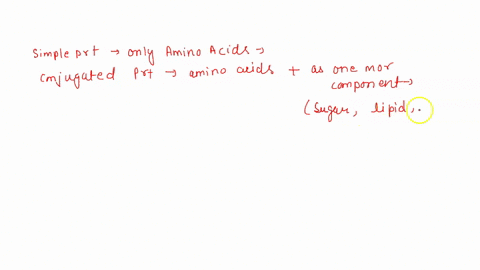 Simple prt → only Amino Acids →
conjugated Prt → amino acids + as one mor
component →
(Sugar, lipid,.